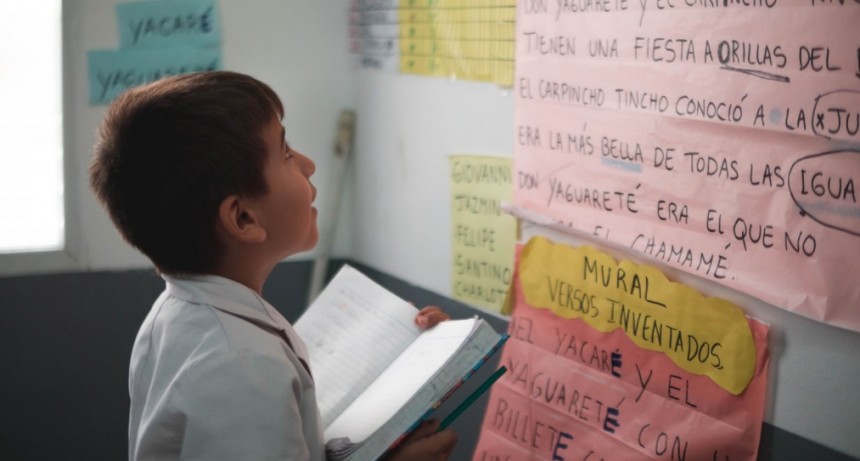 YACARÉ
YAGUARETÉ
DON YAGUARETÉ Y EL CARPINCHO
TIENEN UNA FIESTA A ORILLAS DEL
EL CARPINCHO TINCHO CONOCIÓ A LA (*JU
ERA LA MÁS BELLA DE TODAS LAS IGUA
DON YAGUARETÉ ERA EL QUE NO
EL CHAMAMÉ.
GIOVANN
JAZMIN
FELIPE
SANTINO
CHARLOT
MURAL
VERSOS INVENTADOS.
EL YACARÉ Y EL
YAGUARETÉ CON
BILLETE